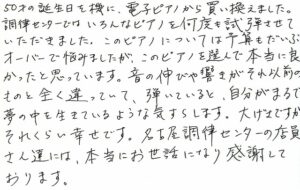 50才の誕生日を機に、電子ピアノから買い換えました。
調律センターではいろんなピアノを何度も試し弾きさせて
いただきました。このピアノについては予算もだいぶ
オーバーで悩みましたが、このピアノを選んで本当に良
かったと思っています。音の伸びや響きがそれ以前の
ものと全く違っていて、弾いていると、自分がまるで
夢の中を生きているような気すらします。大げさですが
それくらい幸せです。名古屋調律センターの店員
さん達には、本当にお世話になり感謝して
おります。